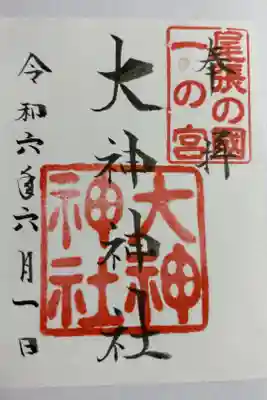 奉拝
尾張の國
一の宮
大神神社
大神
神社
令和六年六月一日